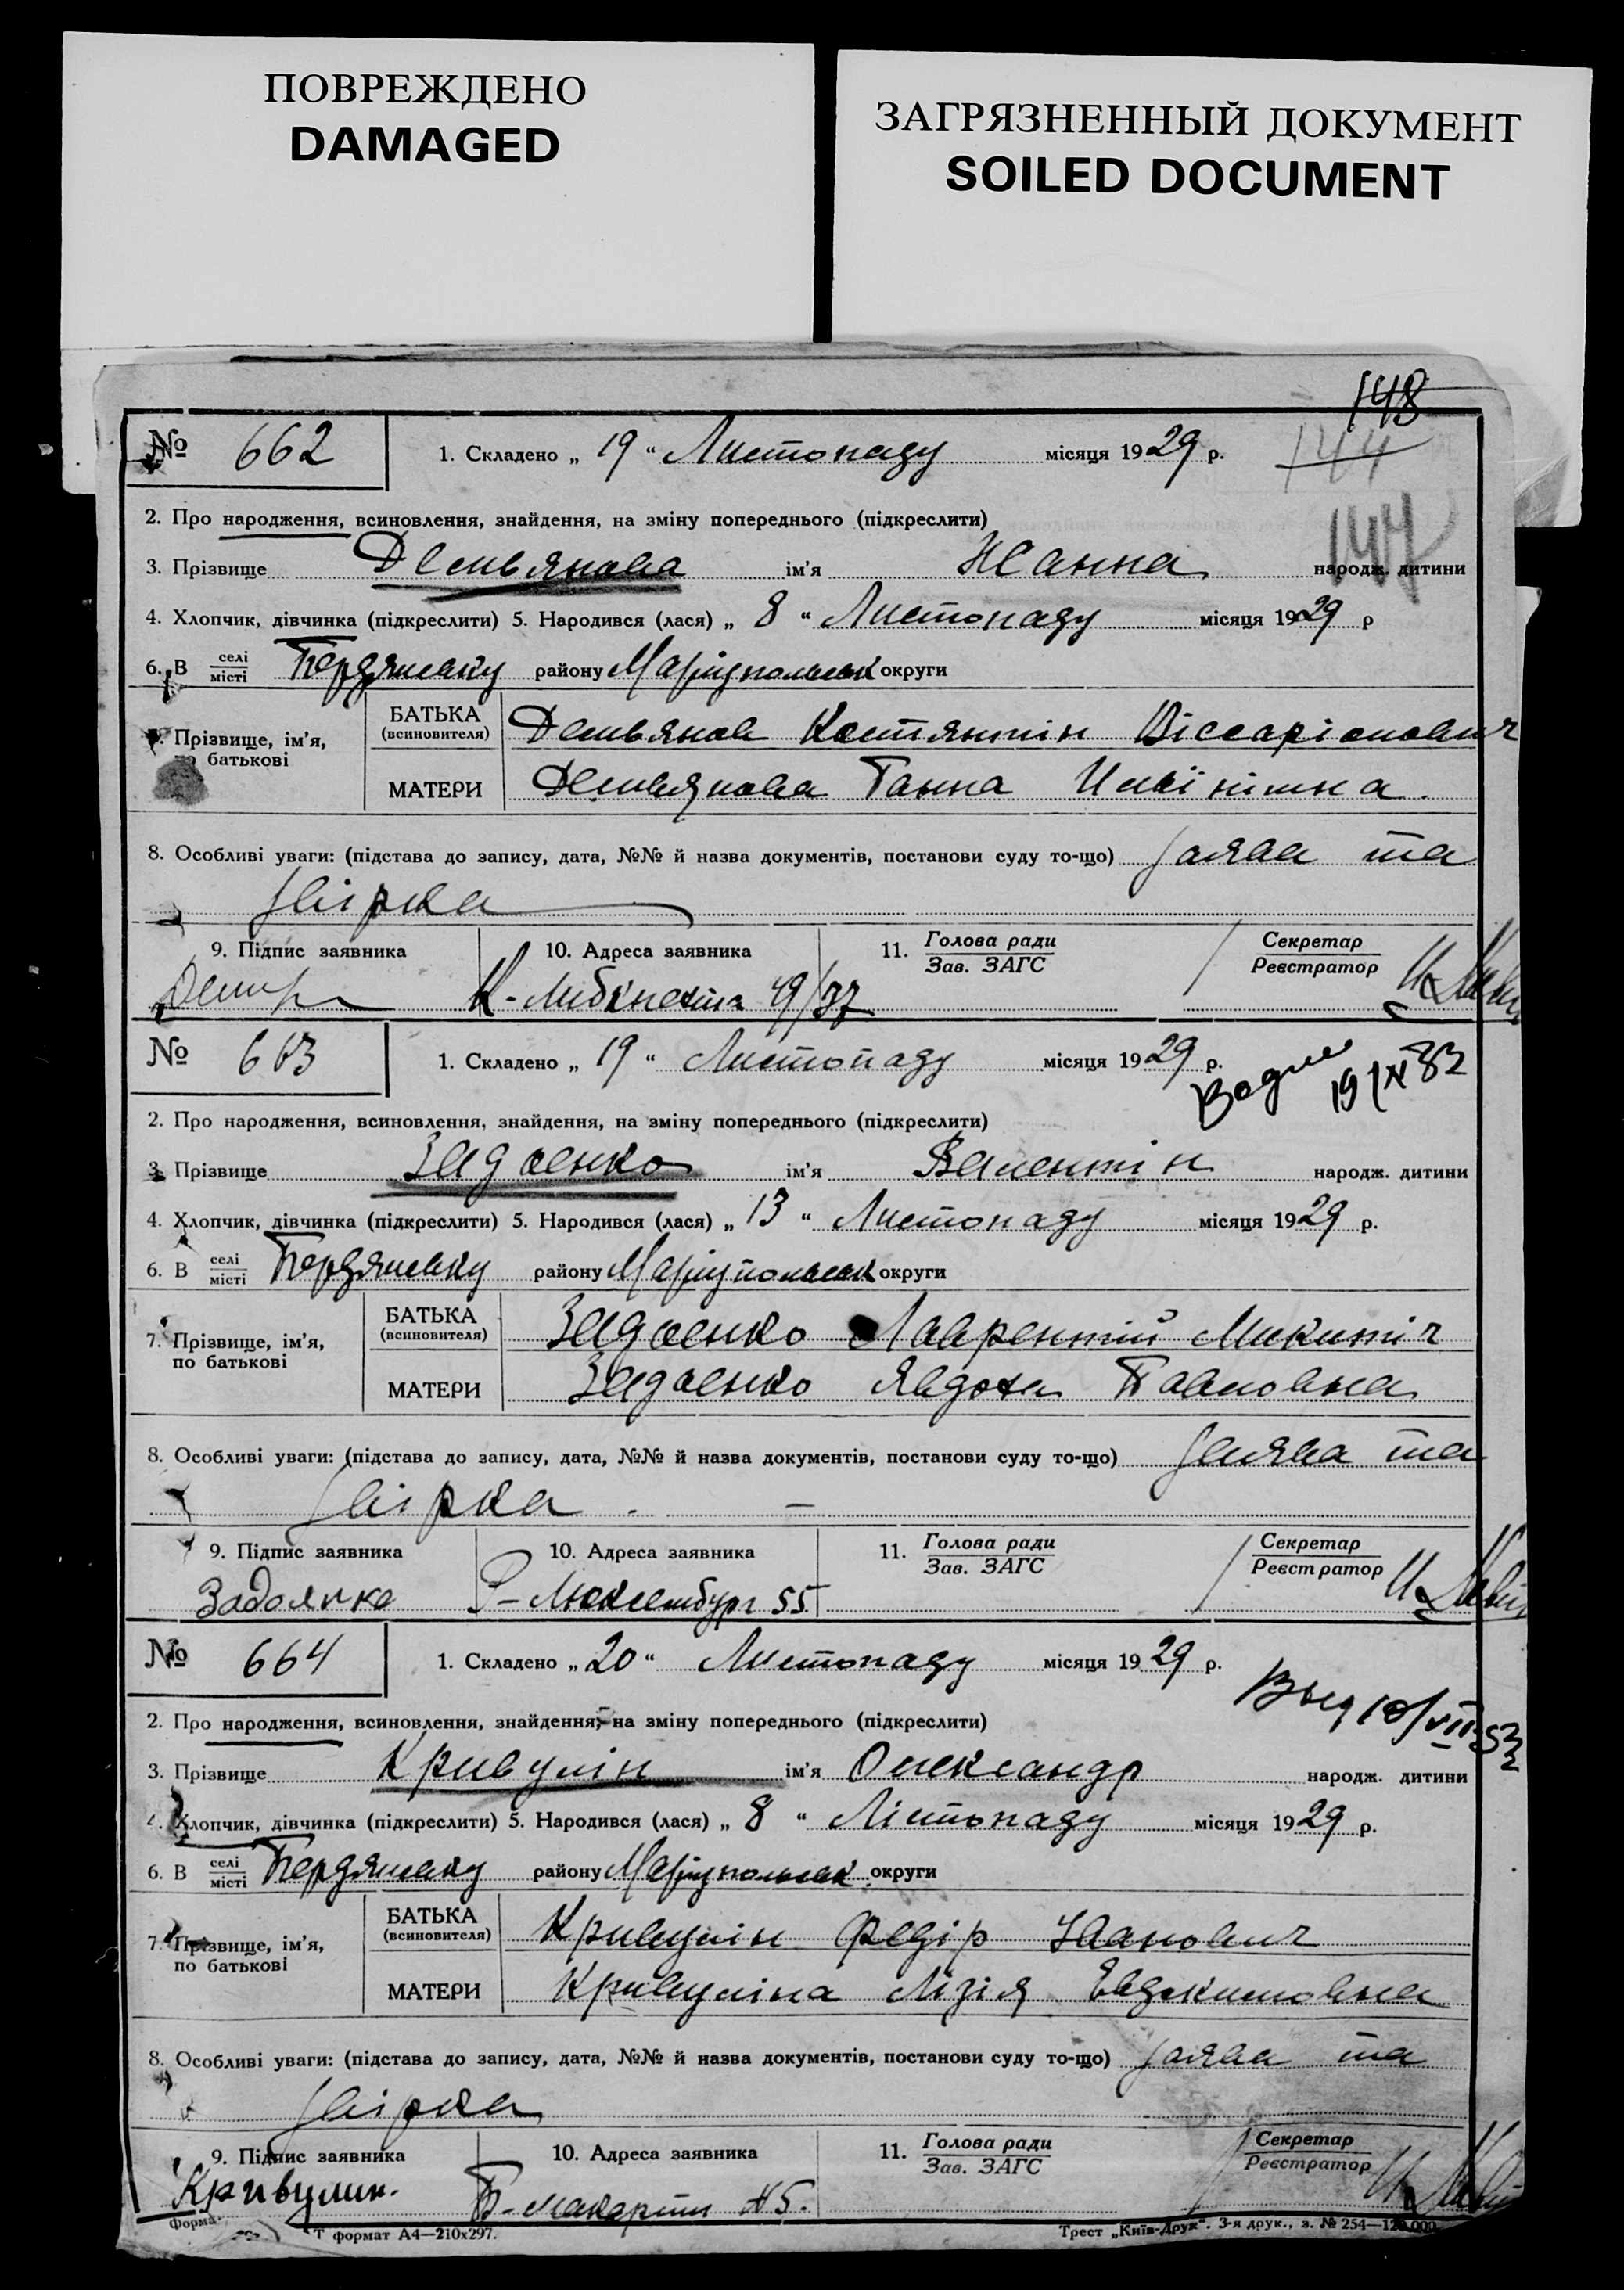 ПОВРЕЖДЕНО
DAMAGED
ЗАГРЯЗНЕННЫЙ ДОКУМЕНТ
SOILED DOCUMENT
148
144
147
№ 662 1. Складено „ 19 “ Листопаду місяця 1929 р.
2. Про народження, всиновлення, знайдення, на зміну попереднього (підкреслити)
3. Прізвище Демьянова ім’я Жанна народж. дитини
4. Хлопчик, дівчинка (підкреслити) 5. Народився (лася) „ 8 “ Листопаду місяця 1929 р
6. В селі місті Бердянську району Маріупольськ округи
7. Прізвище, ім’я, по батькові
БАТЬКА (всиновителя) Демьянов Костянтін Віссаріонович
МАТЕРИ Демьянова Ганна
8. Особливі уваги: (підстава до запису, дата, №№ й назва документів, постанови суду то-що) заява та
звірка
9. Підпис заявника 10. Адреса заявника 11. Голова ради Зав. ЗАГС Секретар Реєстратор
К-Либкнехта 49/37
№ 663 1. Складено „ 19 “ Листопаду місяця 1929 р.
19/IX 83
2. Про народження, всиновлення, знайдення, на зміну попереднього (підкреслити)
3. Прізвище Задоенко ім’я Валентін народж. дитини
4. Хлопчик, дівчинка (підкреслити) 5. Народився (лася) „ 13 “ Листопаду місяця 1929 р.
6. В селі місті Бердянську району Маріупольськ округи
7. Прізвище, ім’я, по батькові
БАТЬКА (всиновителя) Задоенко Лаврентій Микитіч
МАТЕРИ Задоенко Явдоха Павловна
8. Особливі уваги: (підстава до запису, дата, №№ й назва документів, постанови суду то-що) заява та
звірка . –
9. Підпис заявника 10. Адреса заявника 11. Голова ради Зав. ЗАГС Секретар Реєстратор
Р-Люксембург 55
№ 664 1. Складено „ 20 “ Листопаду місяця 1929 р.
Выд 10/VII 53
2. Про народження, всиновлення, знайдення, на зміну попереднього (підкреслити)
3. Прізвище Кривулін ім’я Олександр народж. дитини
4. Хлопчик, дівчинка (підкреслити) 5. Народився (лася) „ 8 “ Лістопаду місяця 1929 р.
6. В селі місті Бердянську району Маріупольськ округи
7. Прізвище, ім’я, по батькові
БАТЬКА (всиновителя) Кривулін Федір Іванович
МАТЕРИ Кривуліна Лідія Евдокимовна
8. Особливі уваги: (підстава до запису, дата, №№ й назва документів, постанови суду то-що) заява та
звірка
9. Підпис заявника 10. Адреса заявника 11. Голова ради Зав. ЗАГС Секретар Реєстратор
Кривулин.
Форма Т формат А4—210x297. Трест „Київ-Друк“. 3-я друк., з. № 254—120.000